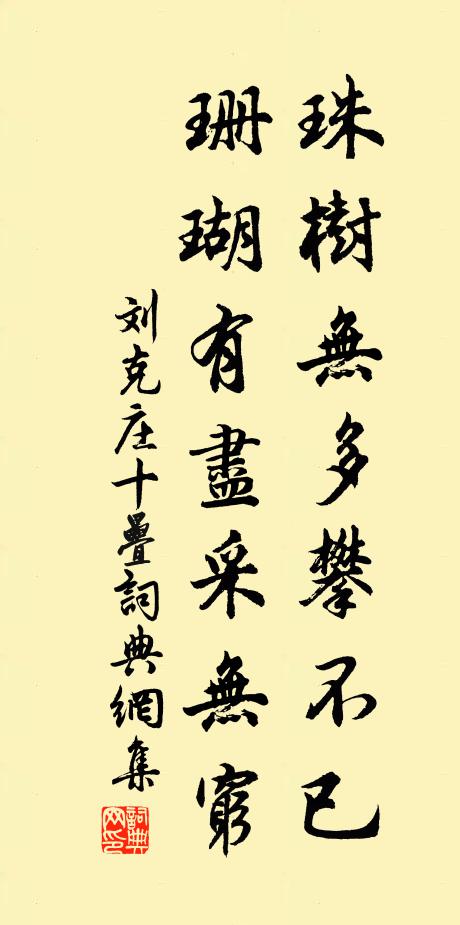 珠樹無多攀不已
珊瑚有盡采無窮
刘克庄十疊詞典網集
詞典網印